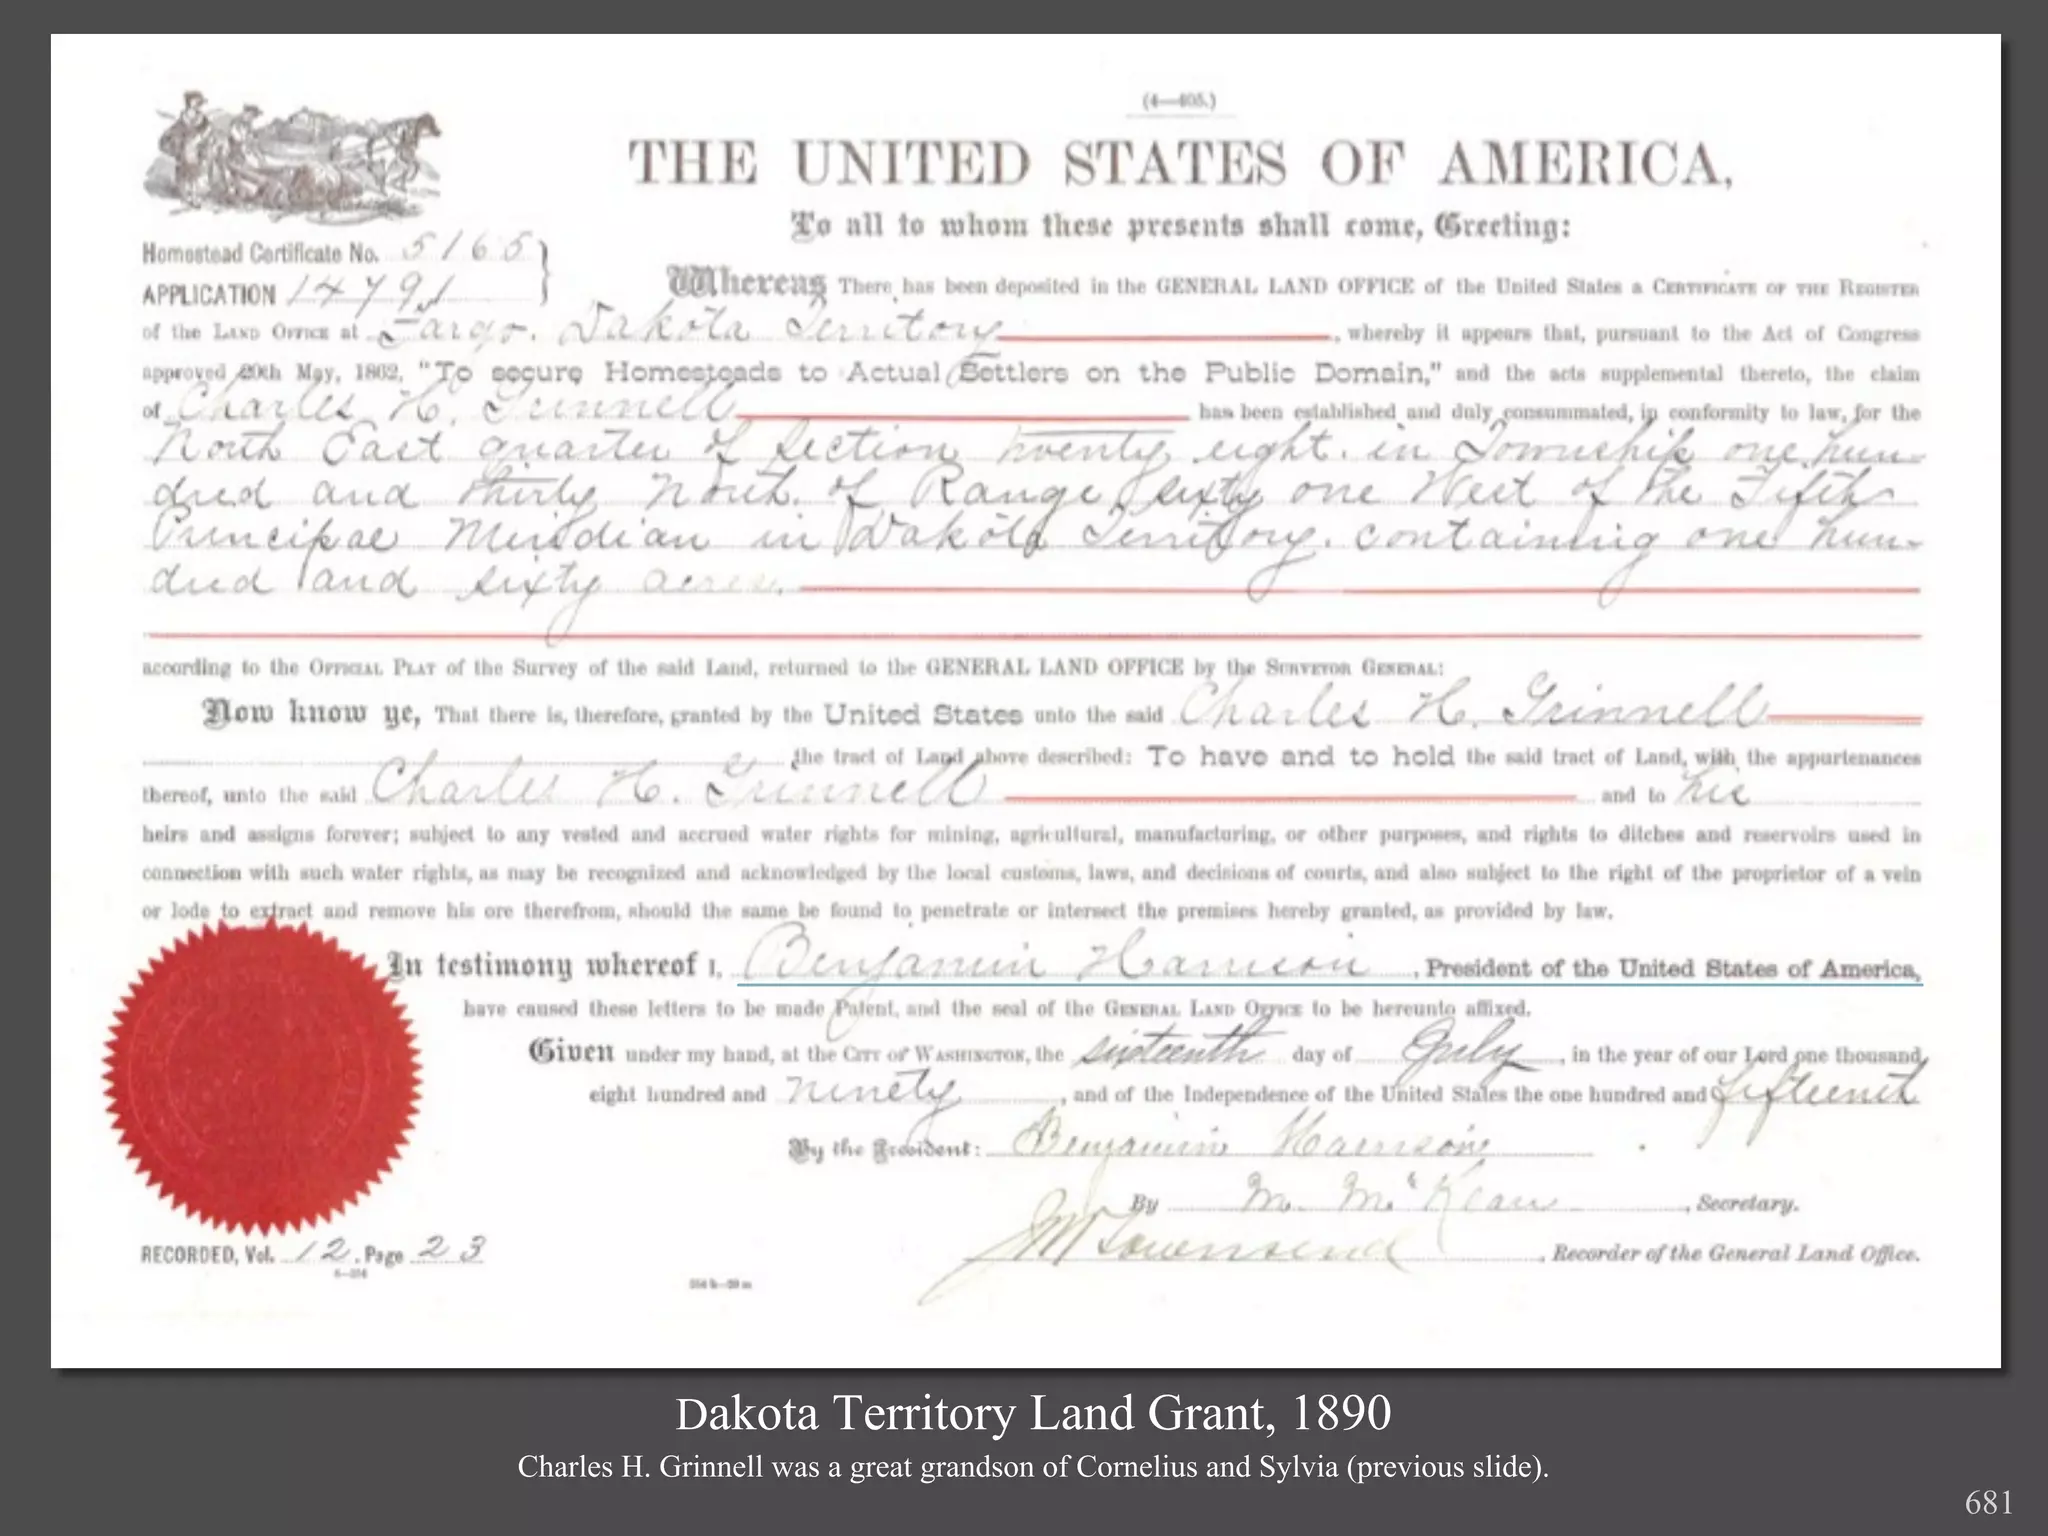 (4—405.)
THE UNITED STATES OF AMERICA,
To all to whom these presents shall come, Greeting:
Homestead Certificate No. 5165
APPLICATION 14791
Whereas There has been deposited in the GENERAL LAND OFFICE of the United States a CERTIFICATE OF THE REGISTER
of the LAND OFFICE at Fargo. Dakota Territory, whereby it appears that, pursuant to the Act of Congress
approved 20th May, 1862, "To secure Homesteads to Actual Settlers on the Public Domain," and the acts supplemental thereto, the claim
of Charles H. Grinnell has been established and duly consummated, in conformity to law, for the
North East quarter of Section twenty eight. in Township one hun-
dred and thirty North. of Range sixty one West of the Fifth
Principal Meridian in Dakota Territory. containing one hun-
dred and sixty acres.
according to the OFFICIAL PLAT of the Survey of the said Land, returned to the GENERAL LAND OFFICE by the SURVEYOR GENERAL:
Now know ye, That there is, therefore, granted by the United States unto the said Charles H. Grinnell
the tract of Land above described: To have and to hold the said tract of Land, with the appurtenances
thereof, unto the said Charles H. Grinnell and to his
heirs and assigns forever; subject to any vested and accrued water rights for mining, agricultural, manufacturing, or other purposes, and rights to ditches and reservoirs used in
connection with such water rights, as may be recognized and acknowledged by the local customs, laws, and decisions of courts, and also subject to the right of the proprietor of a vein
or lode to extract and remove his ore therefrom, should the same be found to penetrate or intersect the premises hereby granted, as provided by law.
In testimony whereof I, Benjamin Harrison, President of the United States of America,
have caused these letters to be made Patent, and the seal of the GENERAL LAND OFFICE to be hereunto affixed.
Given under my hand, at the CITY OF WASHINGTON, the sixteenth day of July, in the year of our Lord one thousand
eight hundred and ninety, and of the Independence of the United States the one hundred and fifteenth
By the President: Benjamin Harrison
By M. McKean, Secretary.
J M Townsend, Recorder of the General Land Office.
RECORDED, Vol. 12. Page 23
Dakota Territory Land Grant, 1890
Charles H. Grinnell was a great grandson of Cornelius and Sylvia (previous slide).
681